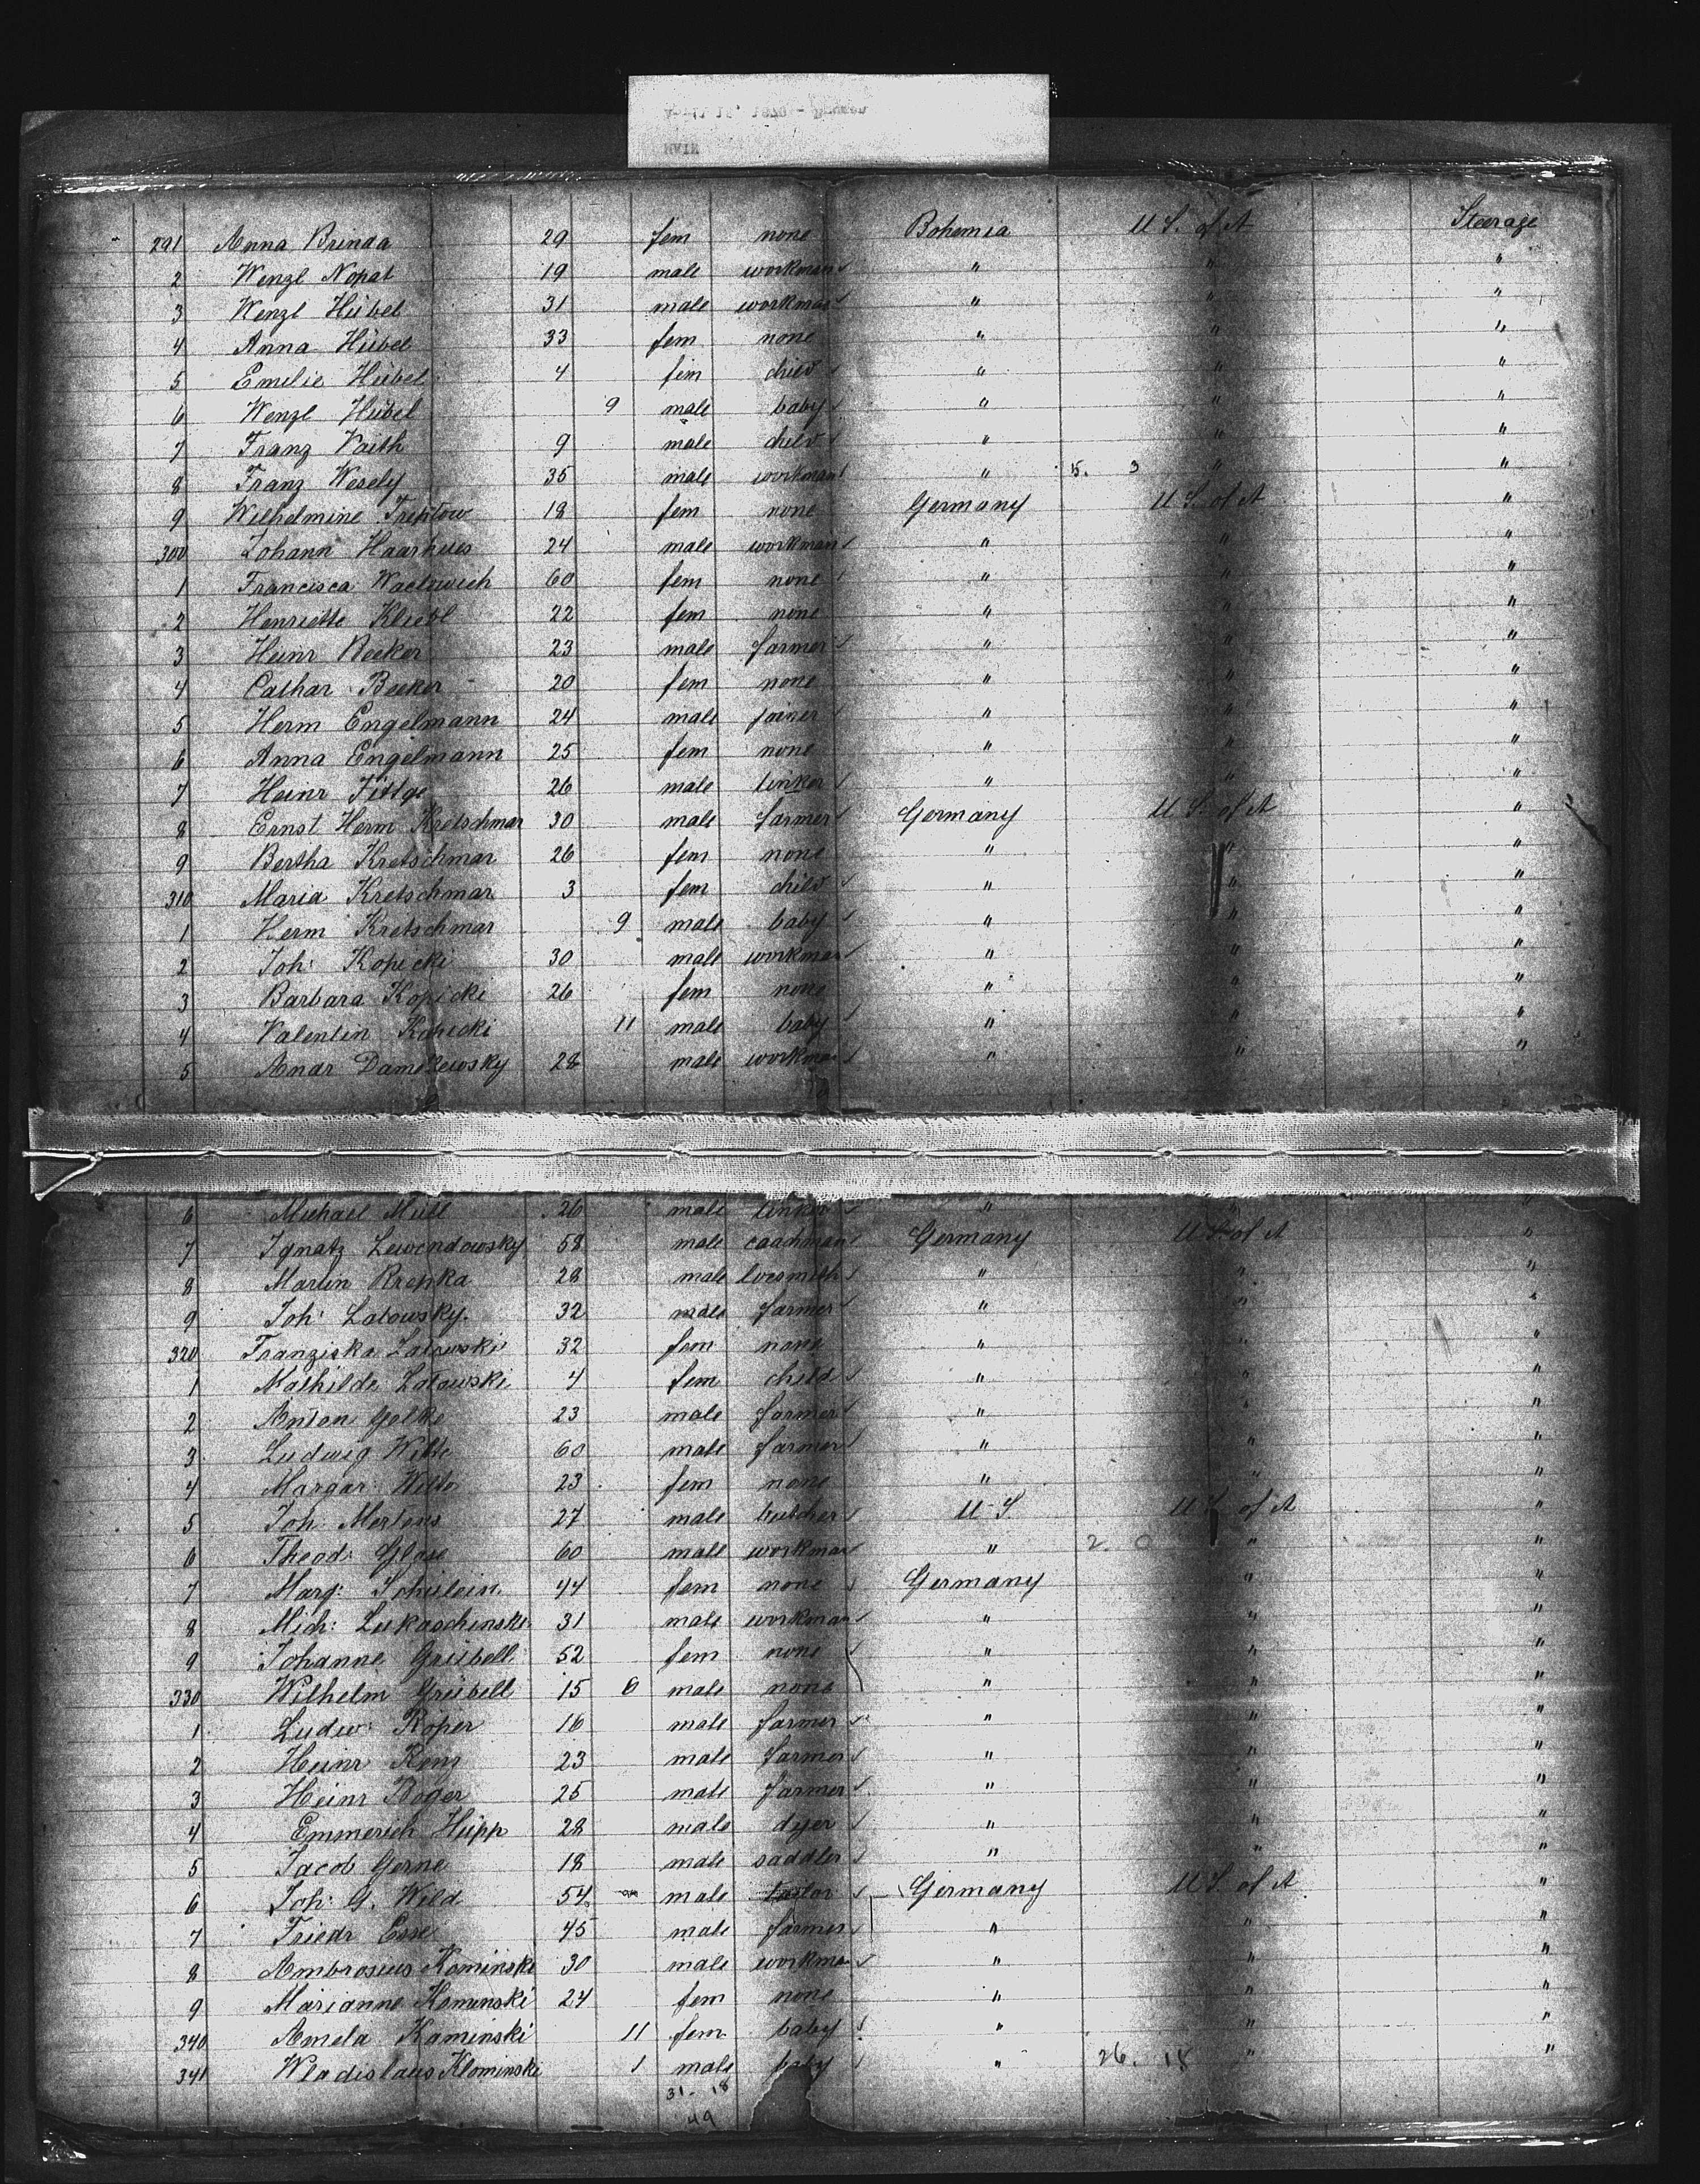 291 Anna Brinda 29 fem none Bohemia U S. of A Steerage
2 Wenzl Nopat 19 male workman " " "
3 Wenzl Hübel 31 male workman " " "
4 Anna Hübel 33 fem none " " "
5 Emilie Hübel 4 fem child " " "
6 Wenzl Hübel 9 male baby " " "
7 Franz Vaith 9 male child " " "
8 Franz Wesely 35 male workman " 5. 3 " "
9 Wilhelmine Treptow 18 fem none Germany U S. of A "
300 Johann Haarhues 24 male workman " " "
1 Francisca 60 fem none " " "
2 Henriette 22 fem none " " "
3 Heinr Becker 23 male farmer " " "
4 Cathar Becker 20 fem none " " "
5 Herm Engelmann 24 male joiner " " "
6 Anna Engelmann 25 fem none " " "
7 Heinr Fittge 26 male tinker " " "
8 Ernst Herm Kretschmar 30 male farmer Germany U S. of A "
9 Bertha Kretschmar 26 fem none " " "
310 Maria Kretschmar 3 fem child " " "
1 Herm Kretschmar 9 male baby " " "
2 Joh: Kopicki 30 male workman " " "
3 Barbara Kopicki 26 fem none " " "
4 Valentin Kopicki 11 male baby " " "
5 Andr 28 male workman " " "
6 Michael 26 male tinker " " "
7 Ignatz Lewendowsky 58 male coachman Germany U S of A "
8 Martin Krepka 28 male locsmith " " "
9 Joh: Latowsky. 32 male farmer " " "
320 Franziska Latowski 32 fem none " " "
1 Mathilde Latowski 4 fem child " " "
2 Anton 23 male farmer " " "
3 Ludwig Witte 60 male farmer " " "
4 Margar: Witte 23 fem none " " "
5 Joh: Mertens 27 male butcher U S. U S of A "
6 Theod: Glase 60 male workman " 2. 0 " "
7 Marg: Schülein 44 fem none Germany " "
8 Mich: Lukaschinski 31 male workman " " "
9 Johanne Grübell 52 fem none " " "
330 Wilhelm Grübell 15 6 male none " " "
1 Ludw: Roper 16 male farmer " " "
2 Heinr Renz 23 male farmer " " "
3 Heinr Boger 25 male farmer " " "
4 Emmerich Hüpp 28 male dyer " " "
5 Jacob Gerne 18 male saddler " " "
6 Joh: G. Wild 54 male tailor Germany U S of A "
7 Friedr Esse 45 male farmer " " "
8 Ambrosius Kominski 30 male workman " " "
9 Marianne Kominski 24 fem none " " "
340 Amela Kaminski 11 fem baby " " "
341 Wladislaus Klominski 1 male baby " 26. 18 " "
31. 18
49